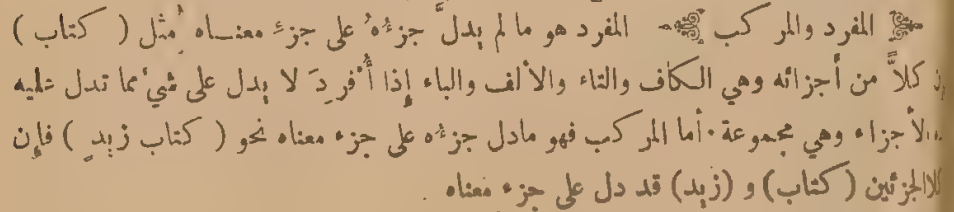 المفرد والمركب المفرد هو ما لم يدلَّ جزءُهُ على جزءِ معنـاه مثل ( كتاب )
كلاًّ من أجزائه وهي الكاف والتاء والألف والباء إِذا أُفرِدَ لا يدل على شيءٍ مما تدل عليه
الأجزاء وهي مجموعة . أما المركب فهو مادل جزءه على جزء معناه نحو ( كتاب زيدٍ ) فإِن
كلاالجزئين ( كتاب ) و ( زيد ) قد دل على جزء معناه .